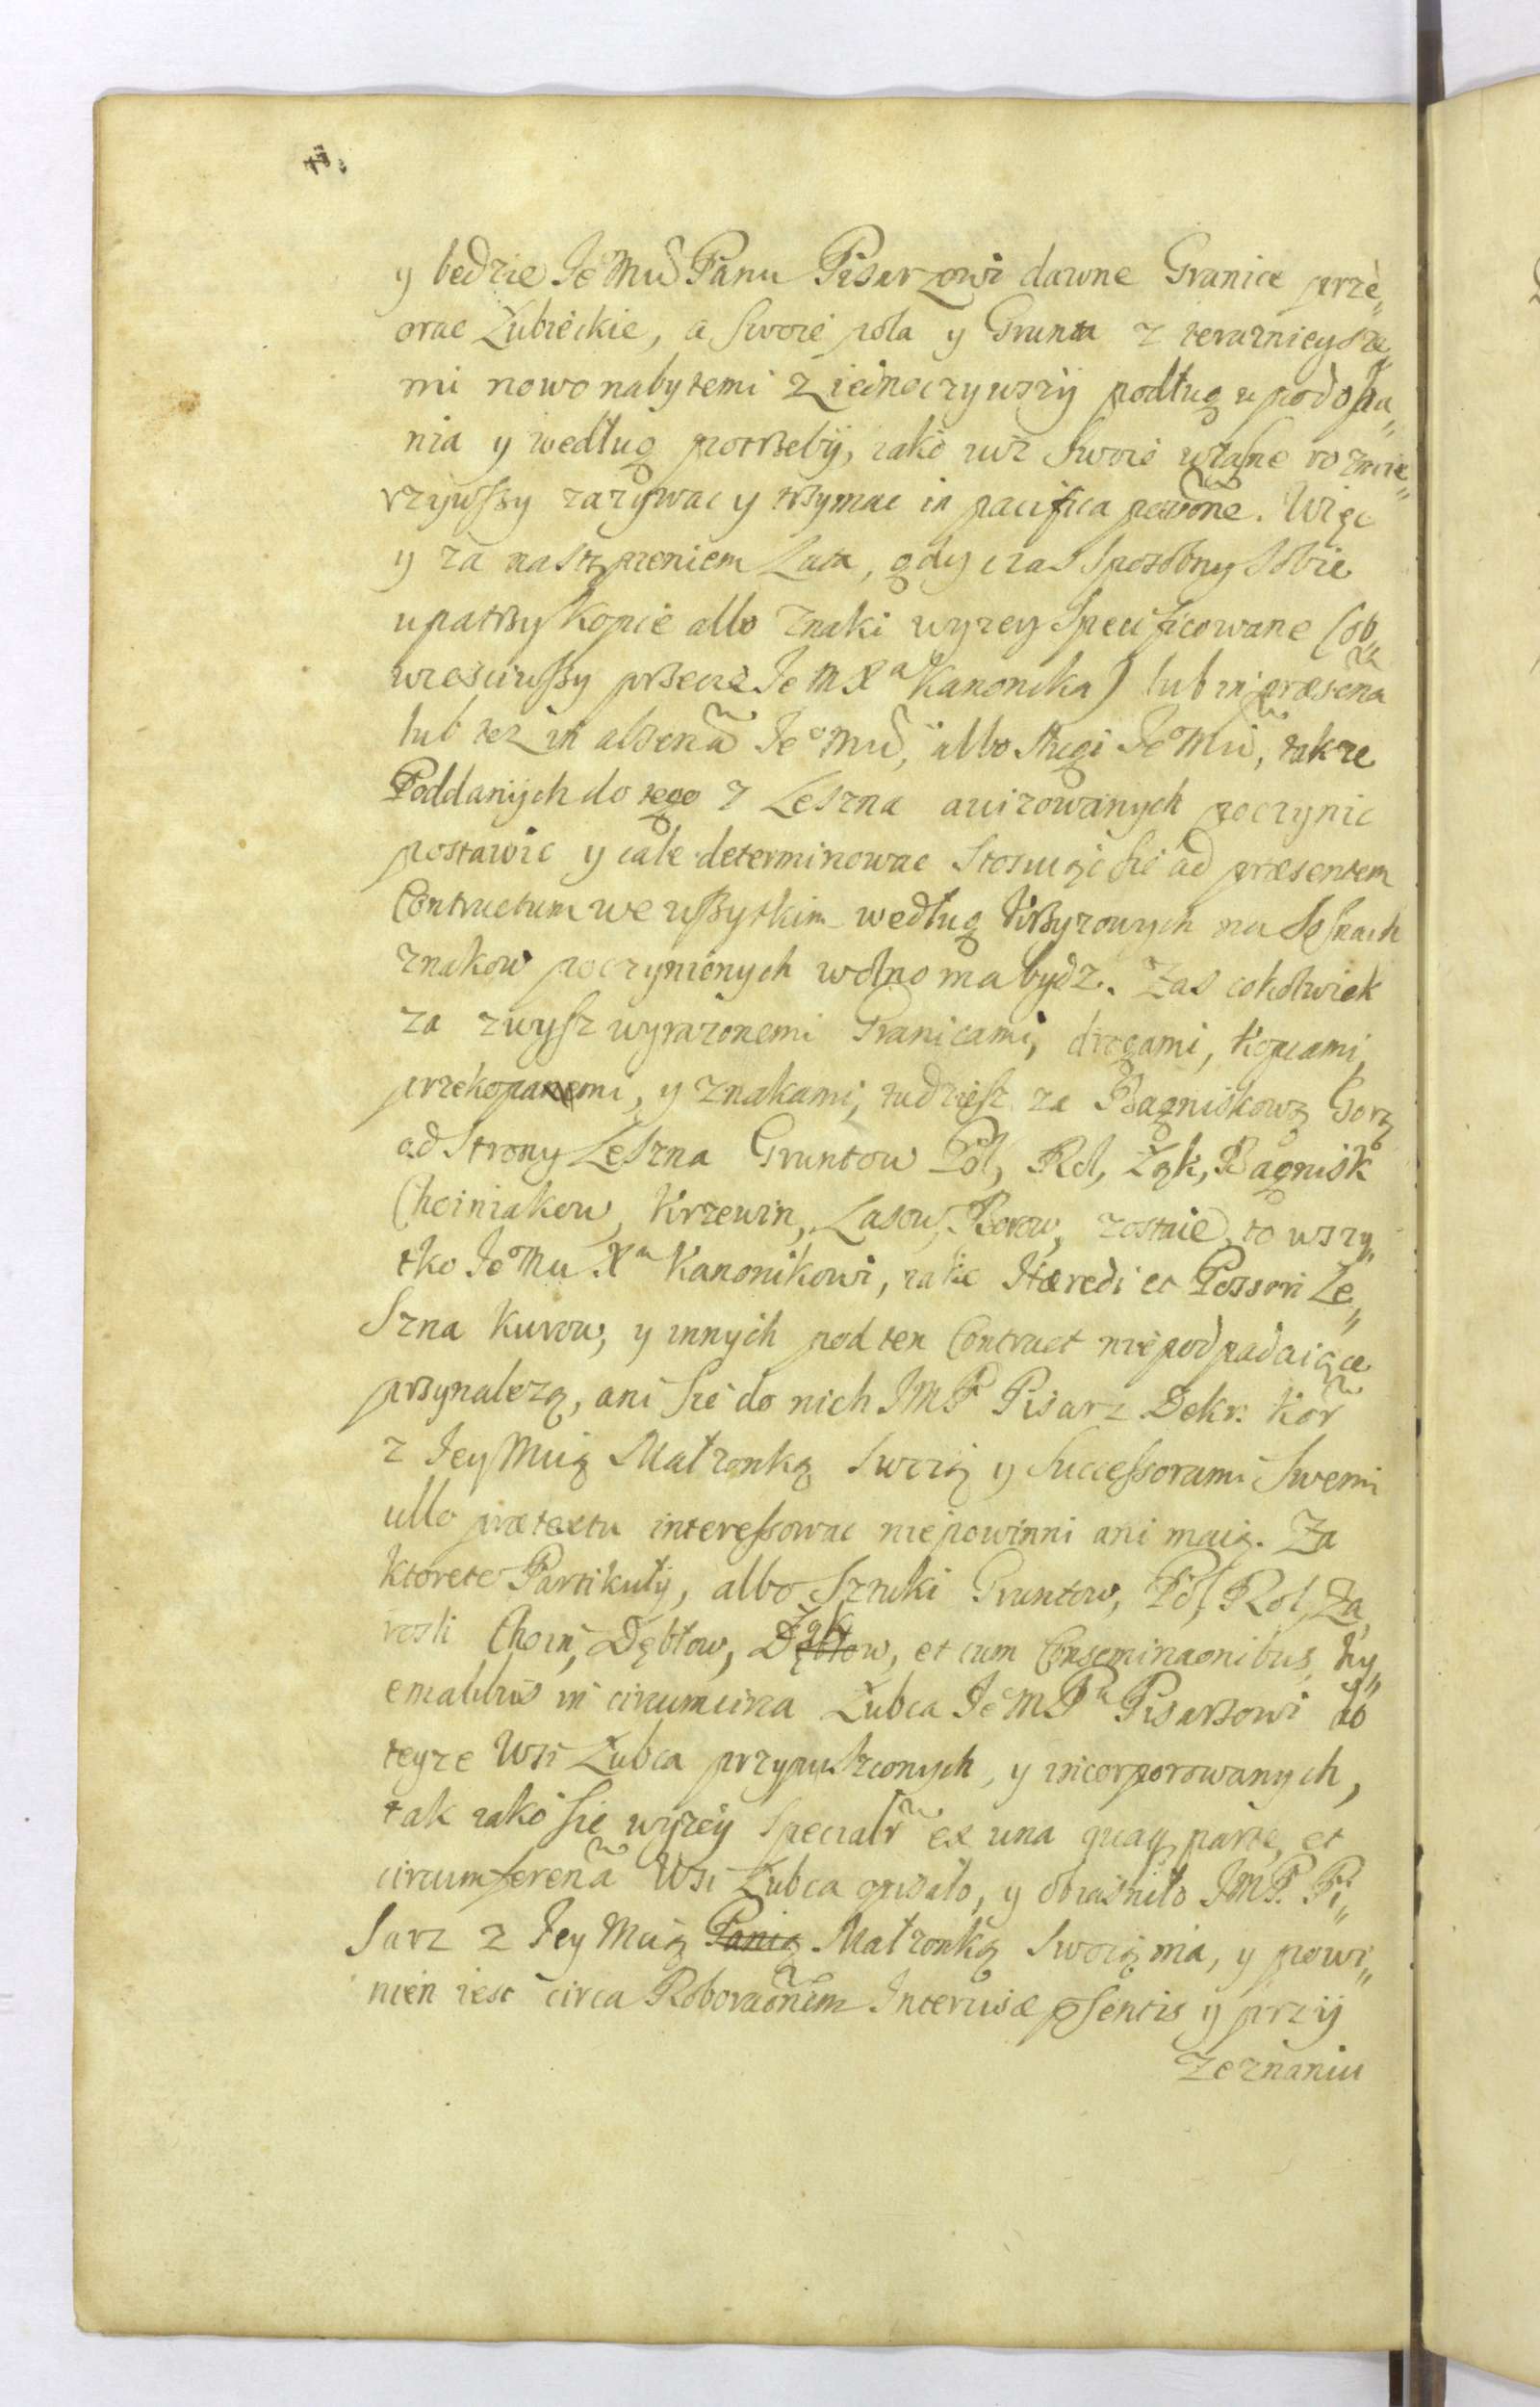 y bedzie Jeº Mući Panu Pisarzowi dawne Granice prze„
orac Łubieckie, a swoie pola y Grunta z terazniejsze„
mi nowo nabytemi ziednoczywszÿ podług upodoba„
nia y według potrzebÿ, iako iuż swoie własne rozmie„
rzÿwszy zazÿwac y trzymac in pacifica possõne. Więc
y za nastąpieniem Lata, gdy czas sposobny sobie
upatrzy kopce albo znaki wyzey specificowane (ob„
wiesciwszy przecie Je M Xª Kanonika) lub in præsena
lub tez in absenã Jeº Mući, albo sługi Jeº Mći, takze
Poddanÿch do tego z Leszna awizowanych poczynic
postawic y cale determinowac stosuiąc sie ad præsentem
Contractum we wszytkim według krzyzowych na Sosnach
znakow poczynionych wolno ma bydz. Zas cokolwiek
za zwysz wyrazonemi Granicami, drogami, kopcami,
przekopanemi, y znakami, tudziesz za Bagniskową Gorą
od strony Leszna Gruntow Pol, Rol, Łąk, Bagnisk
Choiniakow, Krzewin, Lasow, Borow, zostaie, to wszy„
tko Jeº Mu Xu Kanonikowi, iako Hæredi et Possori Le„
szna Kurow, y innych pod ten Contract nie podpadaiące
przynalezą, ani sie do nich JMP Pisarz Dekr: Kor̃
z Jey Mcią Małzonką swoią y Successorami swemi
ullo prætextu interessowac nie powinni ani maią. Za
ktorete Partikułÿ, albo sztuki Gruntow, Pol, Rol, Za„
rosli Choin, Dębłow, Łąk, et cum Conseminaonibus hy„
emalibus in circumcirca Łubca Je M Pu Pisarzowi do
teyze Wsi Łubca przypuszczonych, y incorporowanych,
tak iako sie wyzey specialr̃ ex una quaq parte, et
circumferenã Wsi Łubca opisało, y obiasniło JMP. Pi„
sarz z Jey Mcią Panią Małzonką swoią ma, y powi„
nien iest circa Roboraõnem Intercisæ psentis y przÿ
zeznaniu